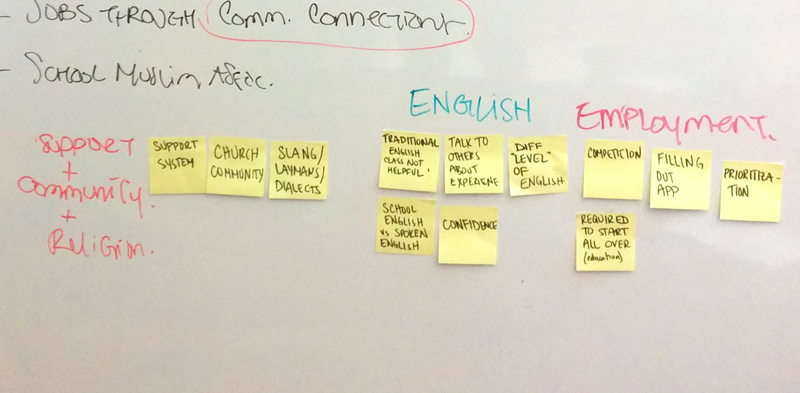 - JOBS THROUGH Comm. Connections.
- SCHOOL MUSLIM
ENGLISH
EMPLOYMENT.
SUPPORT
+
COMMUNITY.
+
RELIGION.
SUPPORT
SYSTEM
CHURCH
COMMUNITY
SLANG/
LAYMANS/
DIALECTS
TRADITIONAL
ENGLISH
CLASS NOT
HELPFUL!
TALK TO
OTHERS
ABOUT
EXPERIENE
DIFF
"LEVEL"
OF
ENGLISH
SCHOOL
ENGLISH
vs SPOKEN
ENGLISH
CONFIDENCE
COMPETITION
FILLING
OUT
APP
PRIORITIZA-
TION
REQUIRED
TO START
ALL OVER
(education)